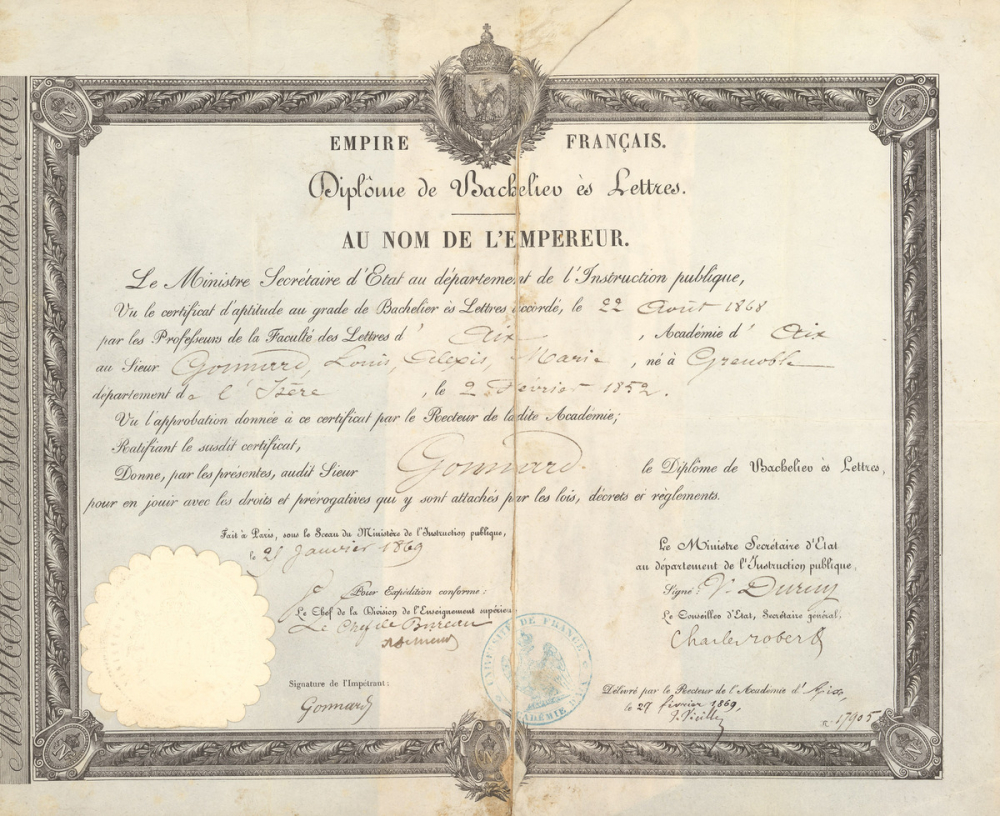 EMPIRE FRANÇAIS.
Diplôme de Bachelier ès Lettres.
AU NOM DE L'EMPEREUR.
Le Ministre Secrétaire d'État au département de l'Instruction publique,
Vu le certificat d'aptitude au grade de Bachelier ès Lettres accordé, le 22 Août 1868
par les Professeurs de la Faculté des Lettres d' Aix, Académie d' Aix
au Sieur Gonnard, Louis, Alexis, Marie, né à Grenoble
département de l'Isère, le 2 Février 1852.
Vu l'approbation donnée à ce certificat par le Recteur de ladite Académie;
Ratifiant le susdit certificat,
Donne, par les présentes, audit Sieur Gonnard. le Diplôme de Bachelier ès Lettres,
pour en jouir avec les droits et prérogatives qui y sont attachés par les lois, décrets et règlements.
Fait à Paris, sous le Sceau du Ministère de l'Instruction publique,
le 21 Janvier 1869
Pour Expédition conforme:
Le Chef de la Division de l'Enseignement supérieur
Le Chef de Bureau
Signature de l'Impétrant:
Gonnard
Le Ministre Secrétaire d'État
au département de l'Instruction publique,
Signé: V. Duruy
Le Conseiller d'État, Secrétaire général,
Charles Robert
Délivré par le Recteur de l'Académie d' Aix,
le 27 février 1869,
J. Vieille
n° 17905
UNIVERSITÉ DE FRANCE
ACADÉMIE D'AIX
N
N
N
N